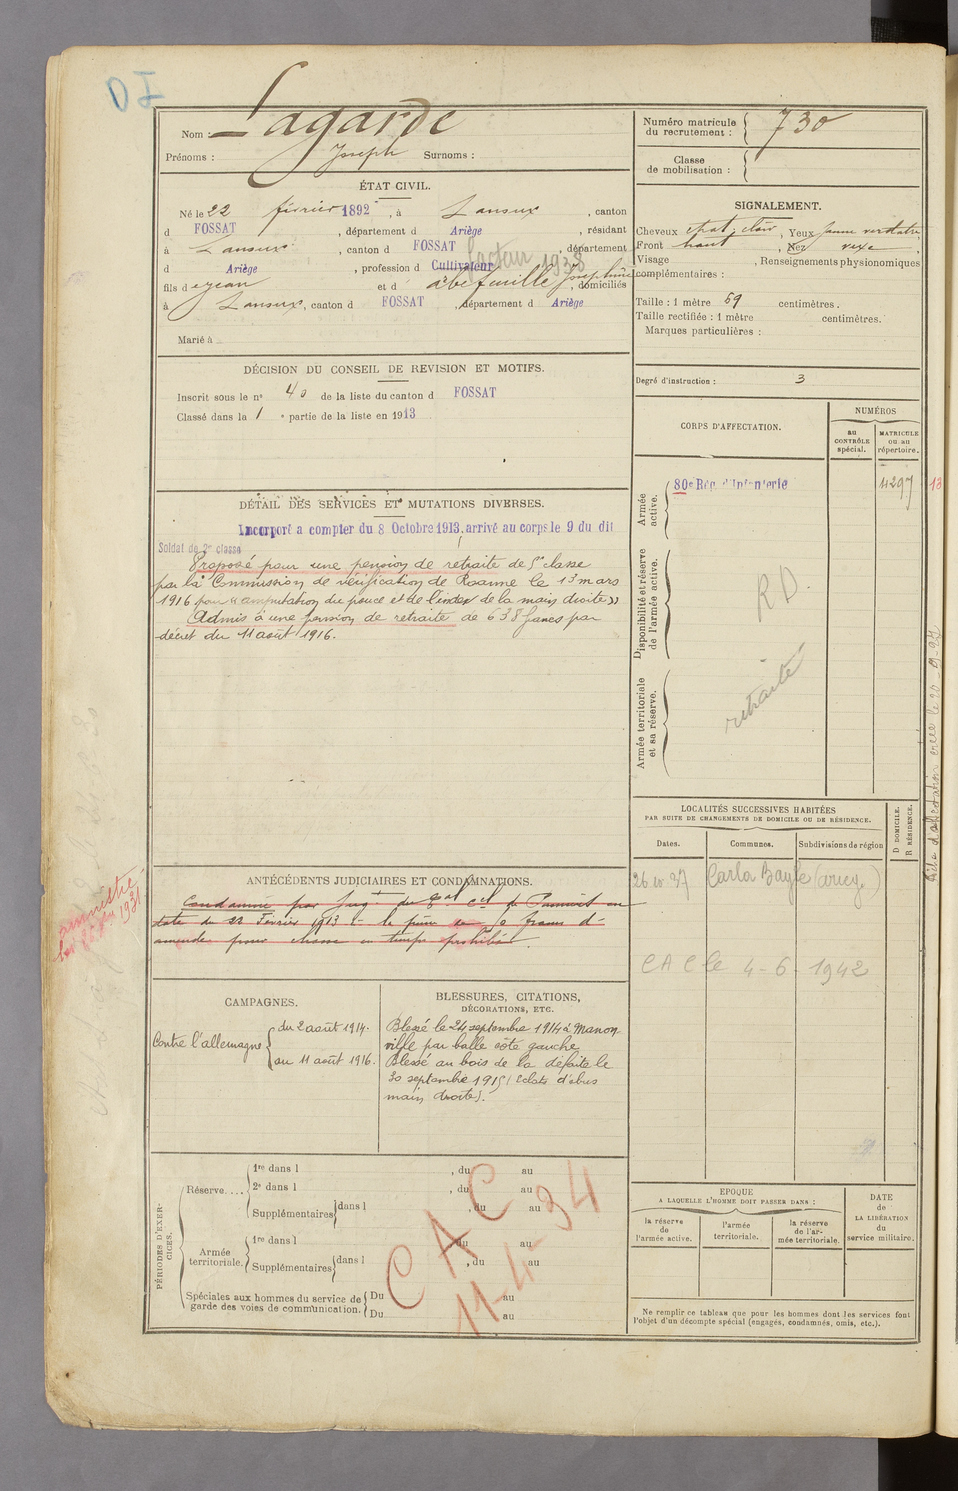 Nom : Lagarde
Prénoms : Joseph Surnoms :
ÉTAT CIVIL.
Né le 22 février 1892, à Lanoux, canton
d FOSSAT, département d Ariège, résidant
à Lanoux, canton d FOSSAT, département
d Ariège, profession d Cultivateur facteur 1938
fils d Jean et d Joséphine, domiciliés
à Lanoux, canton d FOSSAT, département d Ariège
Marié à
DÉCISION DU CONSEIL DE REVISION ET MOTIFS.
Inscrit sous le n° 40 de la liste du canton d FOSSAT
Classé dans la 1 e partie de la liste en 1913
DÉTAIL DES SERVICES ET MUTATIONS DIVERSES.
Incorporé a compter du 8 Octobre 1913, arrivé au corps le 9 du dit
Soldat de 2me classe
Proposé pour une pension de retraite de 5e classe
par la Commission de vérification de Roanne le 13 mars
1916 pour "amputation du pouce et de l'index de la main droite"
Admis à une pension de retraite de 638 francs par
décret du 11 août 1916.
ANTÉCÉDENTS JUDICIAIRES ET CONDAMNATIONS.
Condamné par Jugt du Bal Cel de Pamiers en
date du 22 Février 1913 à la peine de 50 francs d'
amende pour chasse en temps prohibé
amnistié
CAMPAGNES.
Contre l'allemagne
du 2 août 1914.
au 11 août 1916.
BLESSURES, CITATIONS,
DÉCORATIONS, ETC.
Blessé le 24 septembre 1914 à Manon
ville par balle côté gauche
Blessé au bois de la défaite le
30 septembre 1915 (Eclats d'obus
main droite).
PÉRIODES D'EXERCICES.
Réserve....
1re dans l , du au
2e dans l , du au
Supplémentaires dans l , du au
Armée
territoriale.
1re dans l , du au
Supplémentaires dans l , du au
Spéciales aux hommes du service de
garde des voies de communication.
Du au
Du au
CAC
11-4-34
Numéro matricule
du recrutement : 730
Classe
de mobilisation :
SIGNALEMENT.
Cheveux chat. clair, Yeux jaune verdatre,
Front haut, Nez vexe,
Visage , Renseignements physionomiques
complémentaires :
Taille : 1 mètre 69 centimètres.
Taille rectifiée : 1 mètre centimètres.
Marques particulières :
Degré d'instruction : 3
CORPS D'AFFECTATION.
NUMÉROS
au
CONTRÔLE
spécial.
MATRICULE
ou au
répertoire.
Armée
active.
80e Rég. d'Infanterie
4297
13
Disponibilité et réserve
de l'armée active.
R D
Armée territoriale
et sa réserve.
retraité
LOCALITÉS SUCCESSIVES HABITÉES
PAR SUITE DE CHANGEMENTS DE DOMICILE OU DE RÉSIDENCE.
D DOMICILE.
R RÉSIDENCE.
Dates. Communes. Subdivisions de région
Carla Bayle
CAC le 4-6-1942
EPOQUE
A LAQUELLE L'HOMME DOIT PASSER DANS :
la réserve
de
l'armée active.
l'armée
territoriale.
la réserve
de l'ar-
mée territoriale.
DATE
de
LA LIBÉRATION
du
service militaire.
Ne remplir ce tableau que pour les hommes dont les services font
l'objet d'un décompte spécial (engagés, condamnés, omis, etc.).